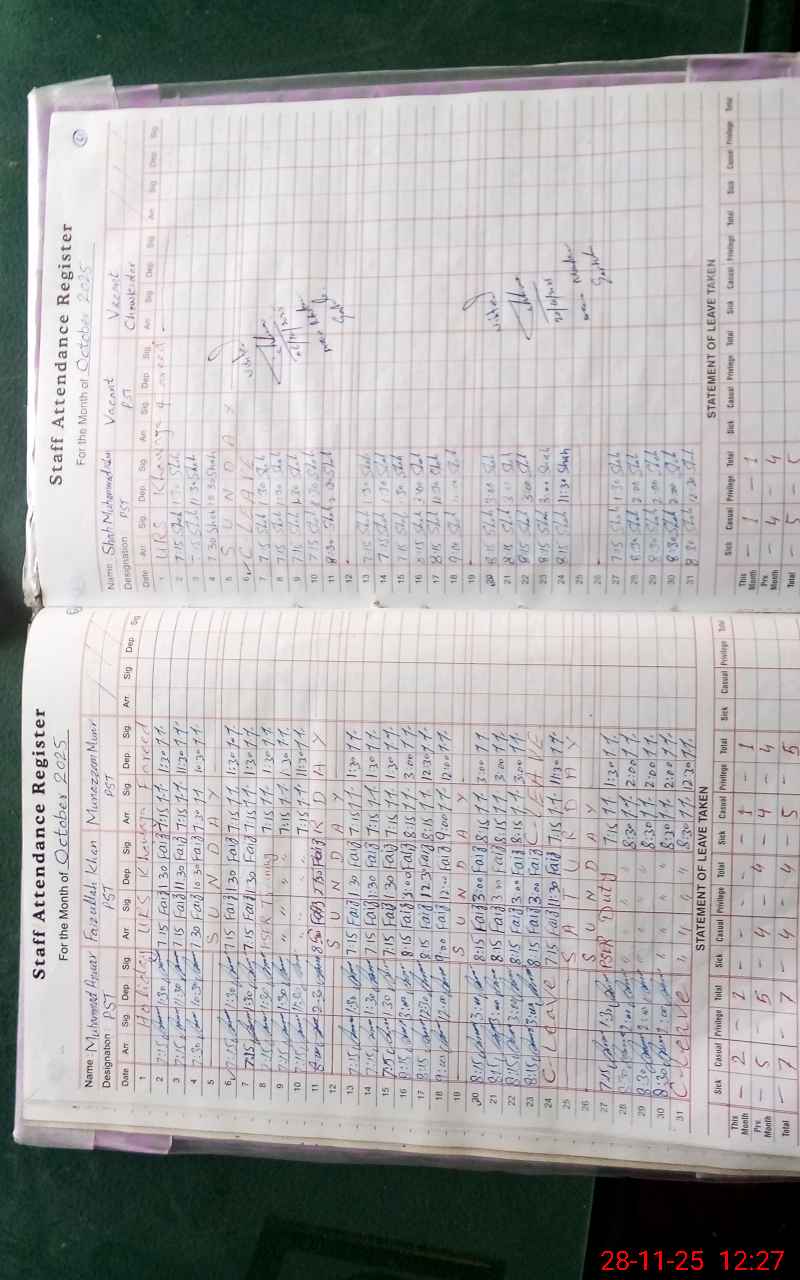 Staff Attendance Register
For the Month of October 2025
Name : Muhammad Faizullah Khan Munazzam Munir
Designation PST PST PST
Date Arr Sig. Dep Sig Arr. Sig. Dep. Sig. Arr. Sig. Dep. Sig. Arr. Sig. Dep. Sig
1 Holiday URS Khawaja Fareed
2 7:15 1:30 7:15 Faiz 1:30 Faiz 7:15 1:30
3 7:15 7:15 Faiz 11:30 Faiz 7:15 11:30
4 7:30 10:30 7:30 Faiz 10:30 Faiz 7:30 10:30
5 S U N D A Y
6 7:15 1:30 7:15 Faiz 1:30 Faiz 7:15 1:30
7 7:15 1:30 7:15 Faiz 1:30 Faiz 7:15 1:30
8 7:15 1:30 7:15 1:30
9 7:15 1:30 " " " 7:15 1:30
10 7:15 " " " 7:15 11:30
11 2:30 Faiz
12 S U N D A Y
13 7:15 1:30 7:15 Faiz 1:30 Faiz 7:15 1:30
14 7:15 1:30 7:15 Faiz 1:30 Faiz 7:15 1:30
15 7:15 1:30 7:15 Faiz 1:30 Faiz 7:15 1:30
16 8:15 3:00 8:15 Faiz 3:00 Faiz 8:15 3:00
17 8:15 12:30 8:15 Faiz 12:30 Faiz 8:15 12:30
18 9:00 12:00 9:00 Faiz 12:00 Faiz 9:00 12:00
19 S U N D A Y
20 8:15 3:00 8:15 Faiz 3:00 Faiz 8:15 3:00
21 8:15 3:00 8:15 Faiz 3:00 Faiz 8:15 3:00
22 8:15 3:00 8:15 Faiz 3:00 Faiz 8:15 3:00
23 8:15 3:00 8:15 Faiz 3:00 Faiz C LEAVE
24 C. Leave 7:15 Faiz 11:30 Faiz 7:15 11:30
25 S A T U R D A Y
26 S U N D A Y
27 7:15 1:30 Duty 7:15 1:30
28 8:30 2:00 8:30 2:00
29 8:30 2:00 8:30 2:00
30 8:30 2:00 8:30 2:00
31 C-Leave 8:30 12:30
STATEMENT OF LEAVE TAKEN
Sick Casual Privilege Total Sick Casual Privilege Total Sick Casual Privilege Total Sick Casual Privilege Total
This Month - 2 - 2 - - - - - 1 - 1
Prs Month - 5 - 5 - 4 - 4 - 4 - 4
Total - 7 - 7 - 4 - 4 - 5 - 5
Staff Attendance Register
For the Month of October 2025
Name Shah Muhammad Vacant Vacant
Designation PST PST Chowkidar
Date Arr. Sig. Dep. Sig. Arr. Sig. Dep. Sig. Arr. Sig. Dep. Sig. Arr. Sig. Dep. Sig.
1 URS Khawaja
2 7:15 Shah 1:30 Shah
3 7:15 Shah 11:30 Shah
4 7:30 Shah 10:30 Shah
5 S U N D A Y
6 C LEAVE
7 7:15 Shah 1:30 Shah
8 7:15 Shah 1:30 Shah
9 7:15 Shah 1:30 Shah
10 7:15 Shah 11:30 Shah
11 8:30 Shah 2:30 Shah
12
13 7:15 Shah 1:30 Shah
14 7:15 Shah 1:30 Shah
15 7:15 Shah 1:30 Shah
16 8:15 Shah 3:00 Shah
17 8:15 Shah 12:30 Shah
18 9:00 Shah 12:00 Shah
19
20 8:15 Shah 3:00 Shah
21 8:15 Shah 3:00 Shah
22 8:15 Shah 3:00 Shah
23 8:15 Shah 3:00 Shah
24 8:15 Shah 11:30 Shah
25
26
27 7:15 Shah 1:30 Shah
28 8:30 Shah 2:00 Shah
29 8:30 Shah 2:00 Shah
30 8:30 Shah 2:00 Shah
31 8:30 Shah 12:30 Shah
STATEMENT OF LEAVE TAKEN
Sick Casual Privilege Total Sick Casual Privilege Total Sick Casual Privilege Total Sick Casual Privilege Total
This Month - 1 - 1
Prs Month - 4 - 4
Total - 5 - 5
28-11-25 12:27